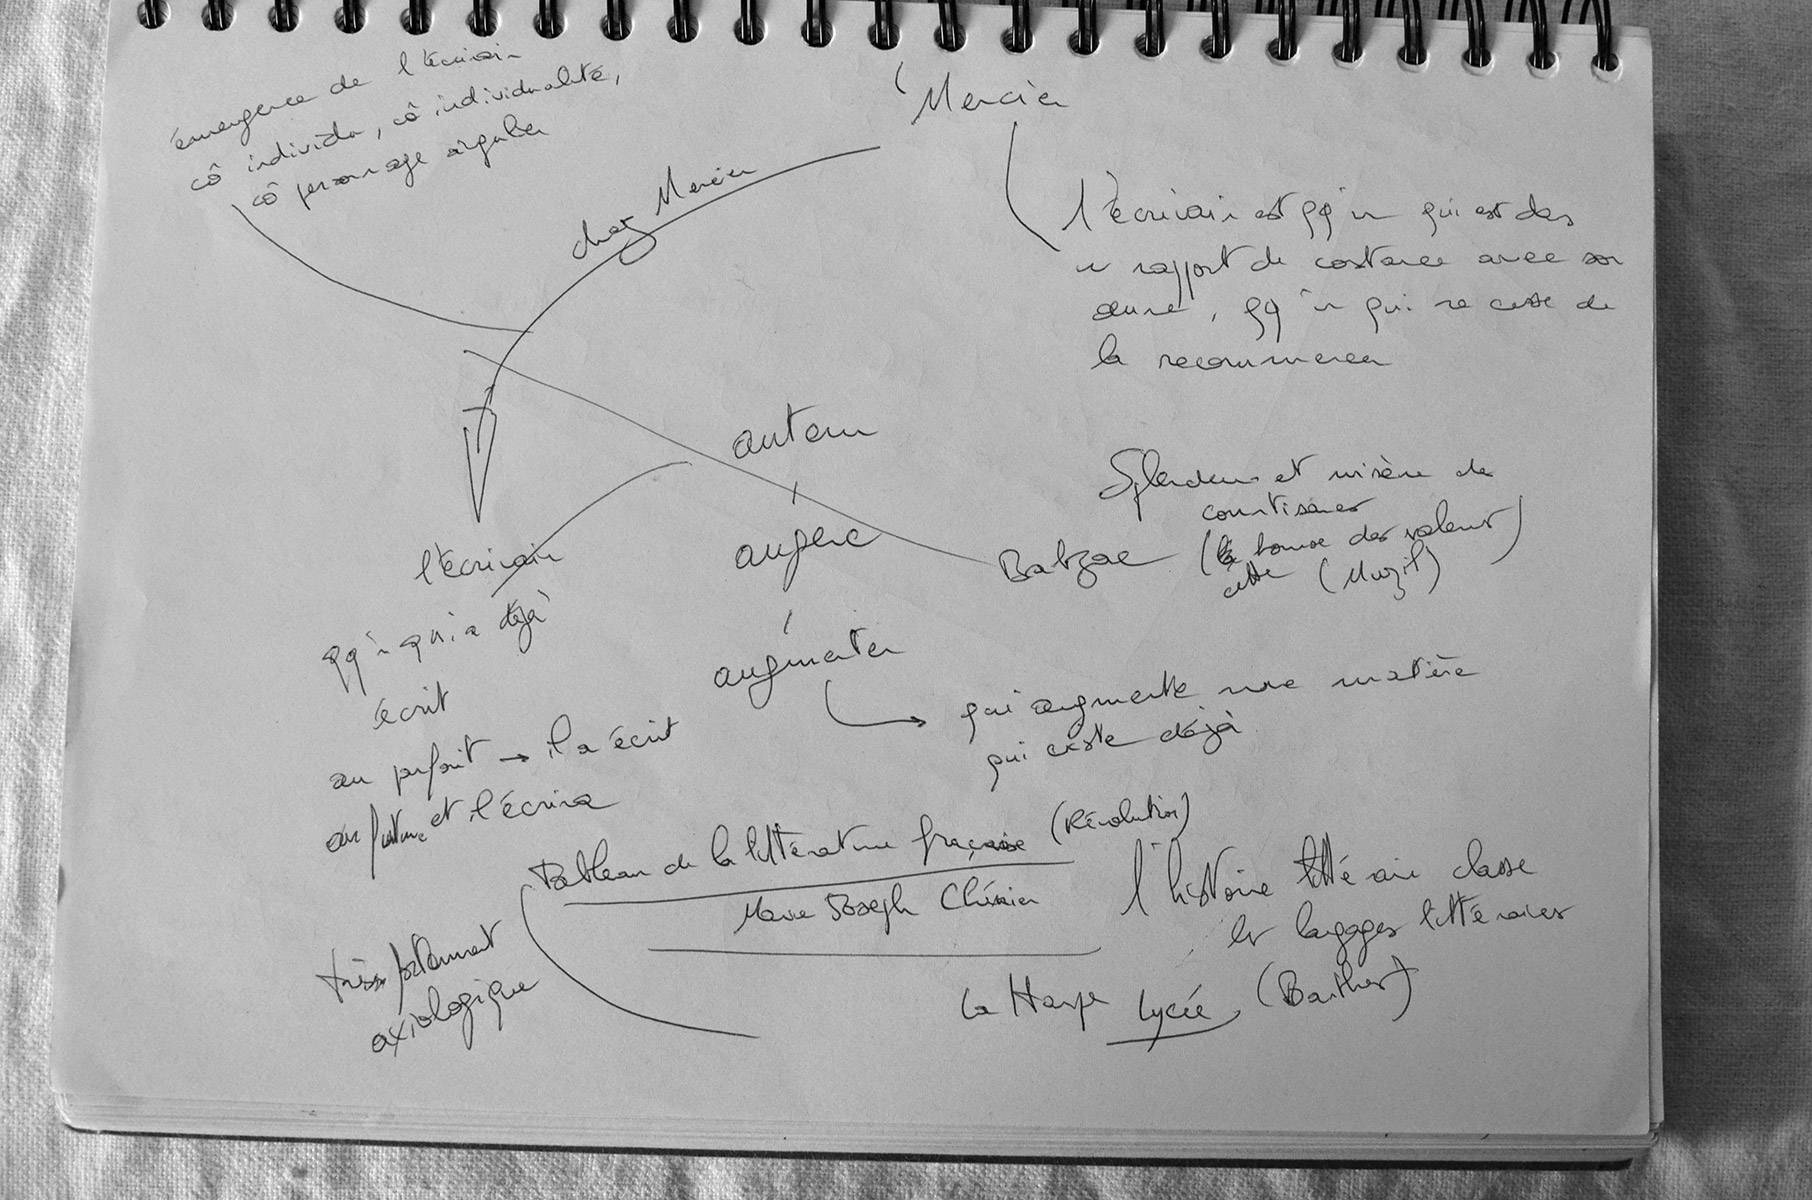 émergence de l'écrivain
cô individu, cô individualité,
cô personnage singulier
Mercier
chez Mercier
l'écrivain est qq'n qui est ds
n rapport de constance avec son
œuvre, qq'n qui ne cesse de
la recommencer
auteur
augere
augmenter
qui augmente une matière
qui existe déjà
Splendeur et misère des
courtisanes
Balzac (la bourse des valeurs)
cette (Musil)
l'écrivain
qq'n qui a déjà
écrit
au parfait → il a écrit
au futur et l'écrira
Tableau de la littérature française (Révolution)
Marie Joseph Chénier
très fortement
axiologique
l'histoire littéraire classe
les langages littéraires
La Harpe Lycée (Barthes)